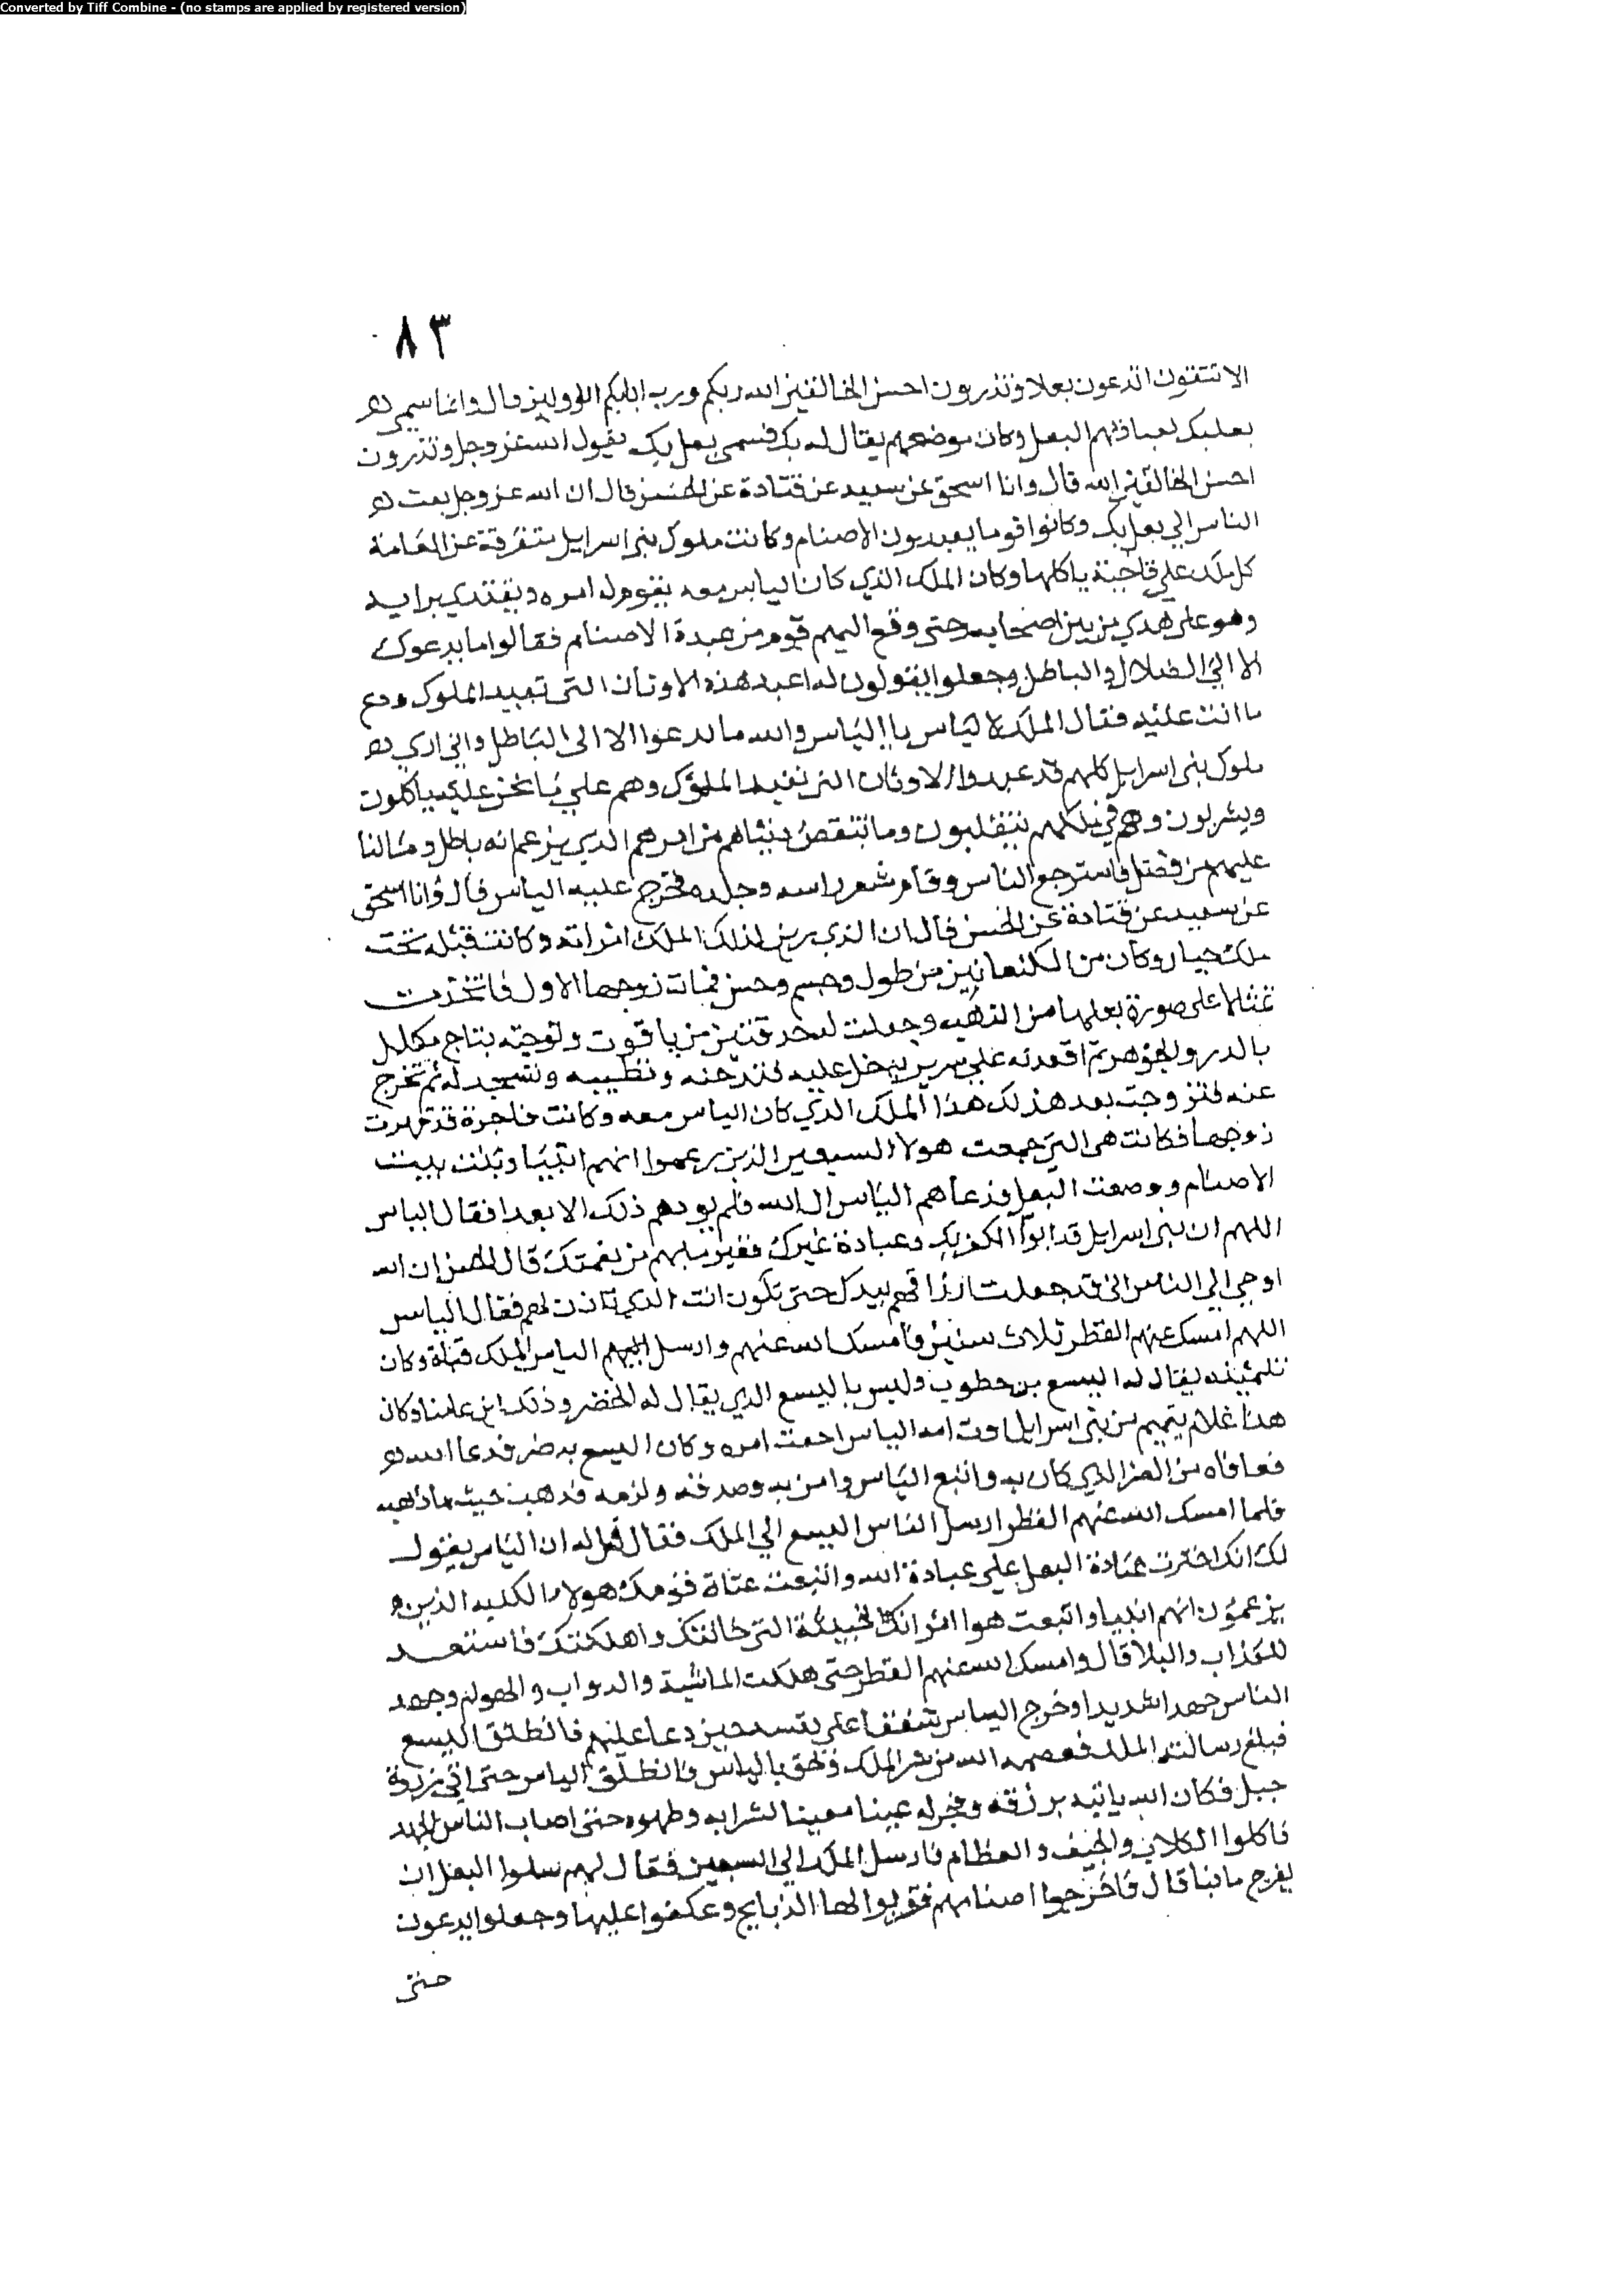 Converted by Tiff Combine - (no stamps are applied by registered version)
٨٣
الا تتقون اتدعون بعلا وتذرون احسن الخالقين الله ربكم ورب ابايكم الاولين قال وانما سمى
بعلبك لعبادتهم البعل وكان موضعهم يقال له بك فسمى بعل بك يقول الله عز وجل وتذرون
احسن الخالقين الله قال وانا اسحق عن سعيد عن قتادة عن الحسن قال ان الله عز وجل بعث
الناس الي بعل بك وكانوا قوما يعبدون الاصنام وكانت ملوك بني اسرايل متفرقة عن العامة
كل ملك علي ناحية ياكلها وكان الملك الذي كان اليا س معه يقوم له امره ويقتدي برايه
وهو علي هدي من بين اصحابه حتى وقع اليهم قوم من عبدة الاصنام فقالوا ما يدعوك
الا الي الضلال والباطل وجعلوا يقولون له اعبد هذه الاوثان التى تعبد الملوك ودع
ما انت عليه فقال الملك لالياس يا الياس والله ما تدعوا الا الى الباطل واني اري
ملوك بنى اسرايل كلهم قد عبدوا الاوثان التى تعبد الملوك وهم علي ما نحن عليه ياكلون
ويشربون وهم في ملكهم يتقلبون وما تنقص دنياهم من امرهم الذي يزعم انه باطل وما لنا
عليهم من فضل فاسترجع الناس وقام شعر راسه وجلده فخرج عليه الياس قال وانا اسحق
عن سعيد عن قتادة عن الحسن قال ان الذي زين لذلك الملك امراته وكانت قبله تحت
ملك جبار وكان من الكنعانيين من طول وجسم وحسن فمات زوجها الاول فاتخذت
تمثالا على صورة بعلها من الذهب وجعلت له حدقتين من ياقوت وتوجته بتاج مكلل
بالدر والجوهر ثم اقعدته علي سرير تدخل عليه فتدخنه وتطيبه وتسجد له ثم تخرج
عنه فتزوجت بعد هذلك هذا الملك الذي كان الياس معه وكانت فاجرة قد قهرت
زوجها فكانت هى التي جمعت هولا السبعين الذين زعموا انهم انبيا وبنت بيت
الاصنام ووضعت البعل فدعاهم الياس الى الله فلم يزدهم ذلك الا بعدا فقال الياس
اللهم ان بنى اسرايل قد ابوا الا الكفر بك وعبادة غيرك فغير ما بهم من نعمتك قال الحسن ان الله
اوحي الي الناس انى قد جعلت ارزاقهم بيدك حتى تكون انت الذي تاذن لهم فقال الياس
اللهم امسك عنهم القطر ثلاث سنين فامسك الله عنهم وارسل اليهم الياس الملك فتاه وكان
تلميذه يقال له اليسع بن خطوب وليس باليسع الذي يقال له الخضر وذلك ابن عاميا وكان
هذا غلام يتيم من بنى اسرايل اوت امه الياس اخفت امره وكان اليسع به ضر فدعا الله
فعافاه من الضر الذي كان به واتبع الياس وامن به وصدقه ولزمه فذهب حيث ما ذهب
فلما امسك الله عنهم القطر ارسل الناس اليسع الي الملك فقال قل له ان الياس يقول
لك انك اخترت عبادة البعل علي عبادة الله واتبعت عتاة قومك هولا الكذبه الذين
يزعمون انهم انبيا واتبعت هوا امراتك الخبيثة التى خانتك واهلكتك فاستعد
للعذاب والبلا قال وامسك الله عنهم القطر حتى هلكت الماشية والدواب والهوام وجهد
الناس جهدا شديدا وخرج الياس شفقا علي نفسه حين دعا عليهم فانطلق اليسع
فبلغ رسالته الملك فعصمه الله من شر الملك ولحق بالياس فانطلق الياس حتى اتى ذروة
جبل فكان الله ياتيه برزقه وفجر له عينا معينا لشرابه وطهوه حتى اصاب الناس الجهد
فاكلوا الكلاب والجيف والعظام فارسل الملك الي السبعين فقال لهم سلوا البعل ان
يفرج ما بنا قال فاخرجوا اصنامهم فقربوا لها الذبايح وعكفوا عليها وجعلوا يدعون
حتى